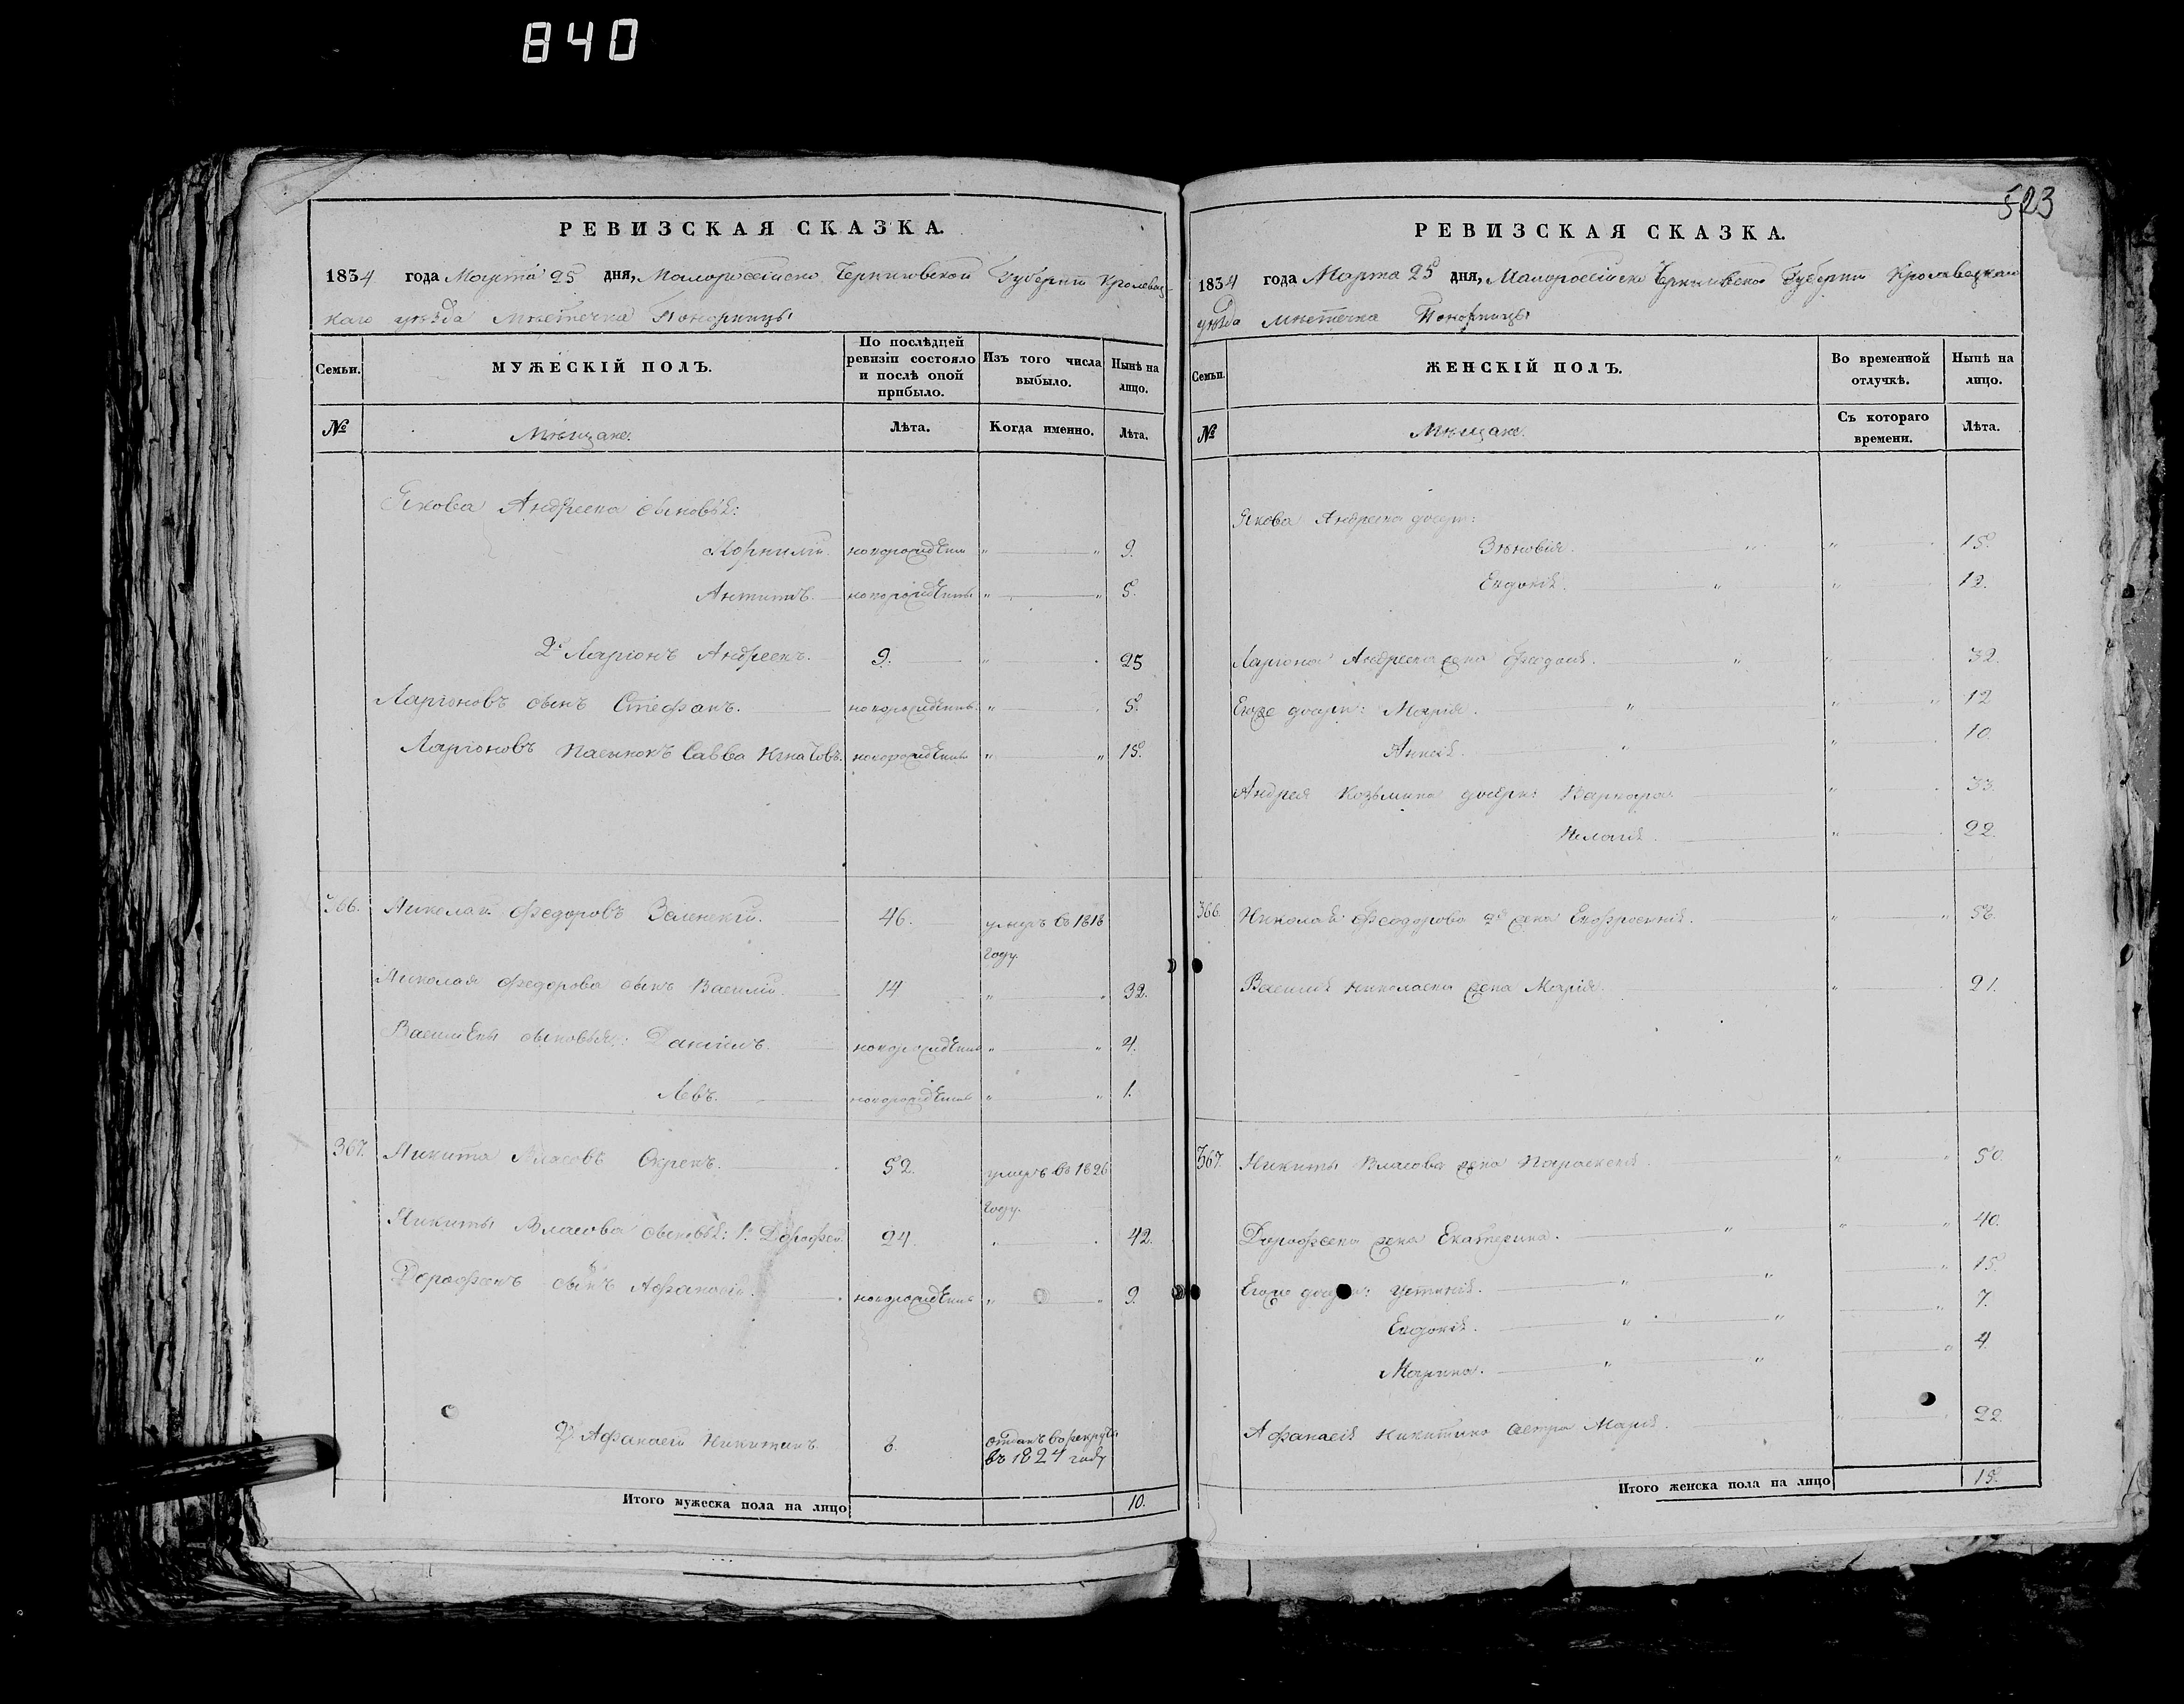 840
523
РЕВИЗСКАЯ СКАЗКА.
1834 года Марта 25 дня, Малороссійско Черниговской Губерніи Кролевец-
каго уѣзда мѣстечка Понорницы
Семьи.
МУЖЕСКІЙ ПОЛЪ.
По послѣдней ревизіи состояло и послѣ оной прибыло.
Изъ того числа выбыло.
Нынѣ на лицо.
№
Мѣщане.
Лѣта.
Когда именно.
Лѣта.
Якова Андреева сыновья:
Корнилій. новорожденъ " " 9.
Антипъ. новорожденъ " " 5.
2й Ларіонъ Андреевъ. 9. " 25
Ларіоновъ сынъ Стефанъ. новорожденъ " 5.
Ларіоновъ пасынокъ Савва Игнатовъ. новорожденъ " " 15.
366. Николай Федоровъ Зеленскій. 46. умеръ въ 1818
году.
Николая Федорова сынъ Василій. 14 " 32.
Васильевы сыновья: Даніилъ. новорожденъ " " 4.
Левъ. новорожденъ " " 1.
367. Никита Власовъ 52. умеръ въ 1826
году.
Никиты Власова сыновья: 1й Дорофей 24. " 42.
Дорофеевъ сынъ Афанасій. новорожденъ " " 9.
2й Афанасій Никитинъ. 8. отданъ в рекруты
въ 1824 году
Итого мужеска пола на лицо 10.
РЕВИЗСКАЯ СКАЗКА.
1834 года Марта 25 дня, Малороссійско Черниговской Губерніи Кролевецкаго
уѣзда мѣстечка Понорницы
Семьи.
ЖЕНСКІЙ ПОЛЪ.
Во временной отлучкѣ.
Нынѣ на лицо.
№
Мѣщане.
Съ котораго времени.
Лѣта.
Якова Андреева дочери:
Зѣновія. " " 15.
Евдокія. " " 12.
Ларіона Андреева жена " " 32.
Егоже дочери: Марія. " " " 12
Анна. " " 10.
Андрея Козьмина дочери: Варвара. " 33.
Пелагія. " 22.
366. Николая Феодорова 2я жена Евфросинія. " " 56.
Василія Николаева жена Марія. " 21.
367. Никиты Власова жена Параскевія. " " 50.
Дорофеева жена Екатерина. " " " 40.
Егоже дочери: Устинія. " " " 15.
Евдокія. " " " 7.
Марина. " " " 4.
Афанасія Никитина сестра Марія. " 22.
Итого женска пола на лицо 15.